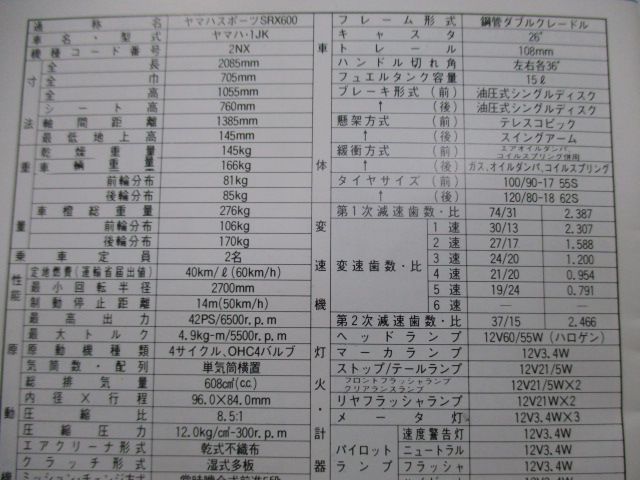 通称名 ヤマハスポーツSRX600
車名・型式 ヤマハ・1JK
機種コード番号 2NX
寸法 全長 2085mm
全巾 705mm
全高 1055mm
シート高 760mm
軸間距離 1385mm
最低地上高 145mm
重量 乾燥重量 145kg
車輌重量 166kg
前輪分布 81kg
後輪分布 85kg
車輌総重量 276kg
前輪分布 106kg
後輪分布 170kg
乗車定員 2名
性能 定地燃費(運輸省届出値) 40km/ℓ(60km/h)
最小回転半径 2700mm
制動停止距離 14m(50km/h)
原動機 最高出力 42PS/6500r.p.m
最大トルク 4.9kg-m/5500r.p.m
原動機種類 4サイクル,OHC4バルブ
気筒数・配列 単気筒横置
総排気量 608㎤(c.c.)
内径×行程 96.0×84.0mm
圧縮比 8.5:1
圧縮圧力 12.0kg/㎠-300r.p.m
エアクリーナ形式 乾式不織布
クラッチ形式 湿式多板
ミッション・チェンジ方式 常時噛合式前進5段
車体 フレーム形式 鋼管ダブルクレードル
キャスタ 26°
トレール 108mm
ハンドル切れ角 左右各36°
フュエルタンク容量 15ℓ
ブレーキ形式(前) 油圧式シングルディスク
↑(後) 油圧式シングルディスク
懸架方式(前) テレスコピック
↑(後) スイングアーム
緩衝方式(前) エアオイルダンパ、コイルスプリング併用
↑(後) ガス、オイルダンパ、コイルスプリング
タイヤサイズ(前) 100/90-17 55S
↑(後) 120/80-18 62S
変速機 第1次減速歯数・比 74/31 2.387
変速歯数・比 1速 30/13 2.307
2速 27/17 1.588
3速 24/20 1.200
4速 21/20 0.954
5速 19/24 0.791
6速 — —
第2次減速歯数・比 37/15 2.466
灯火・計器 ヘッドランプ 12V60/55W(ハロゲン)
マーカランプ 12V3.4W
ストップ/テールランプ 12V21/5W
フロントフラッシャランプ クリアランスランプ 12V21/5W×2
リヤフラッシャランプ 12V21W×2
メータ灯 12V3.4W×3
パイロットランプ 速度警告灯 12V3.4W
ニュートラル 12V3.4W
フラッシャ 12V3.4W